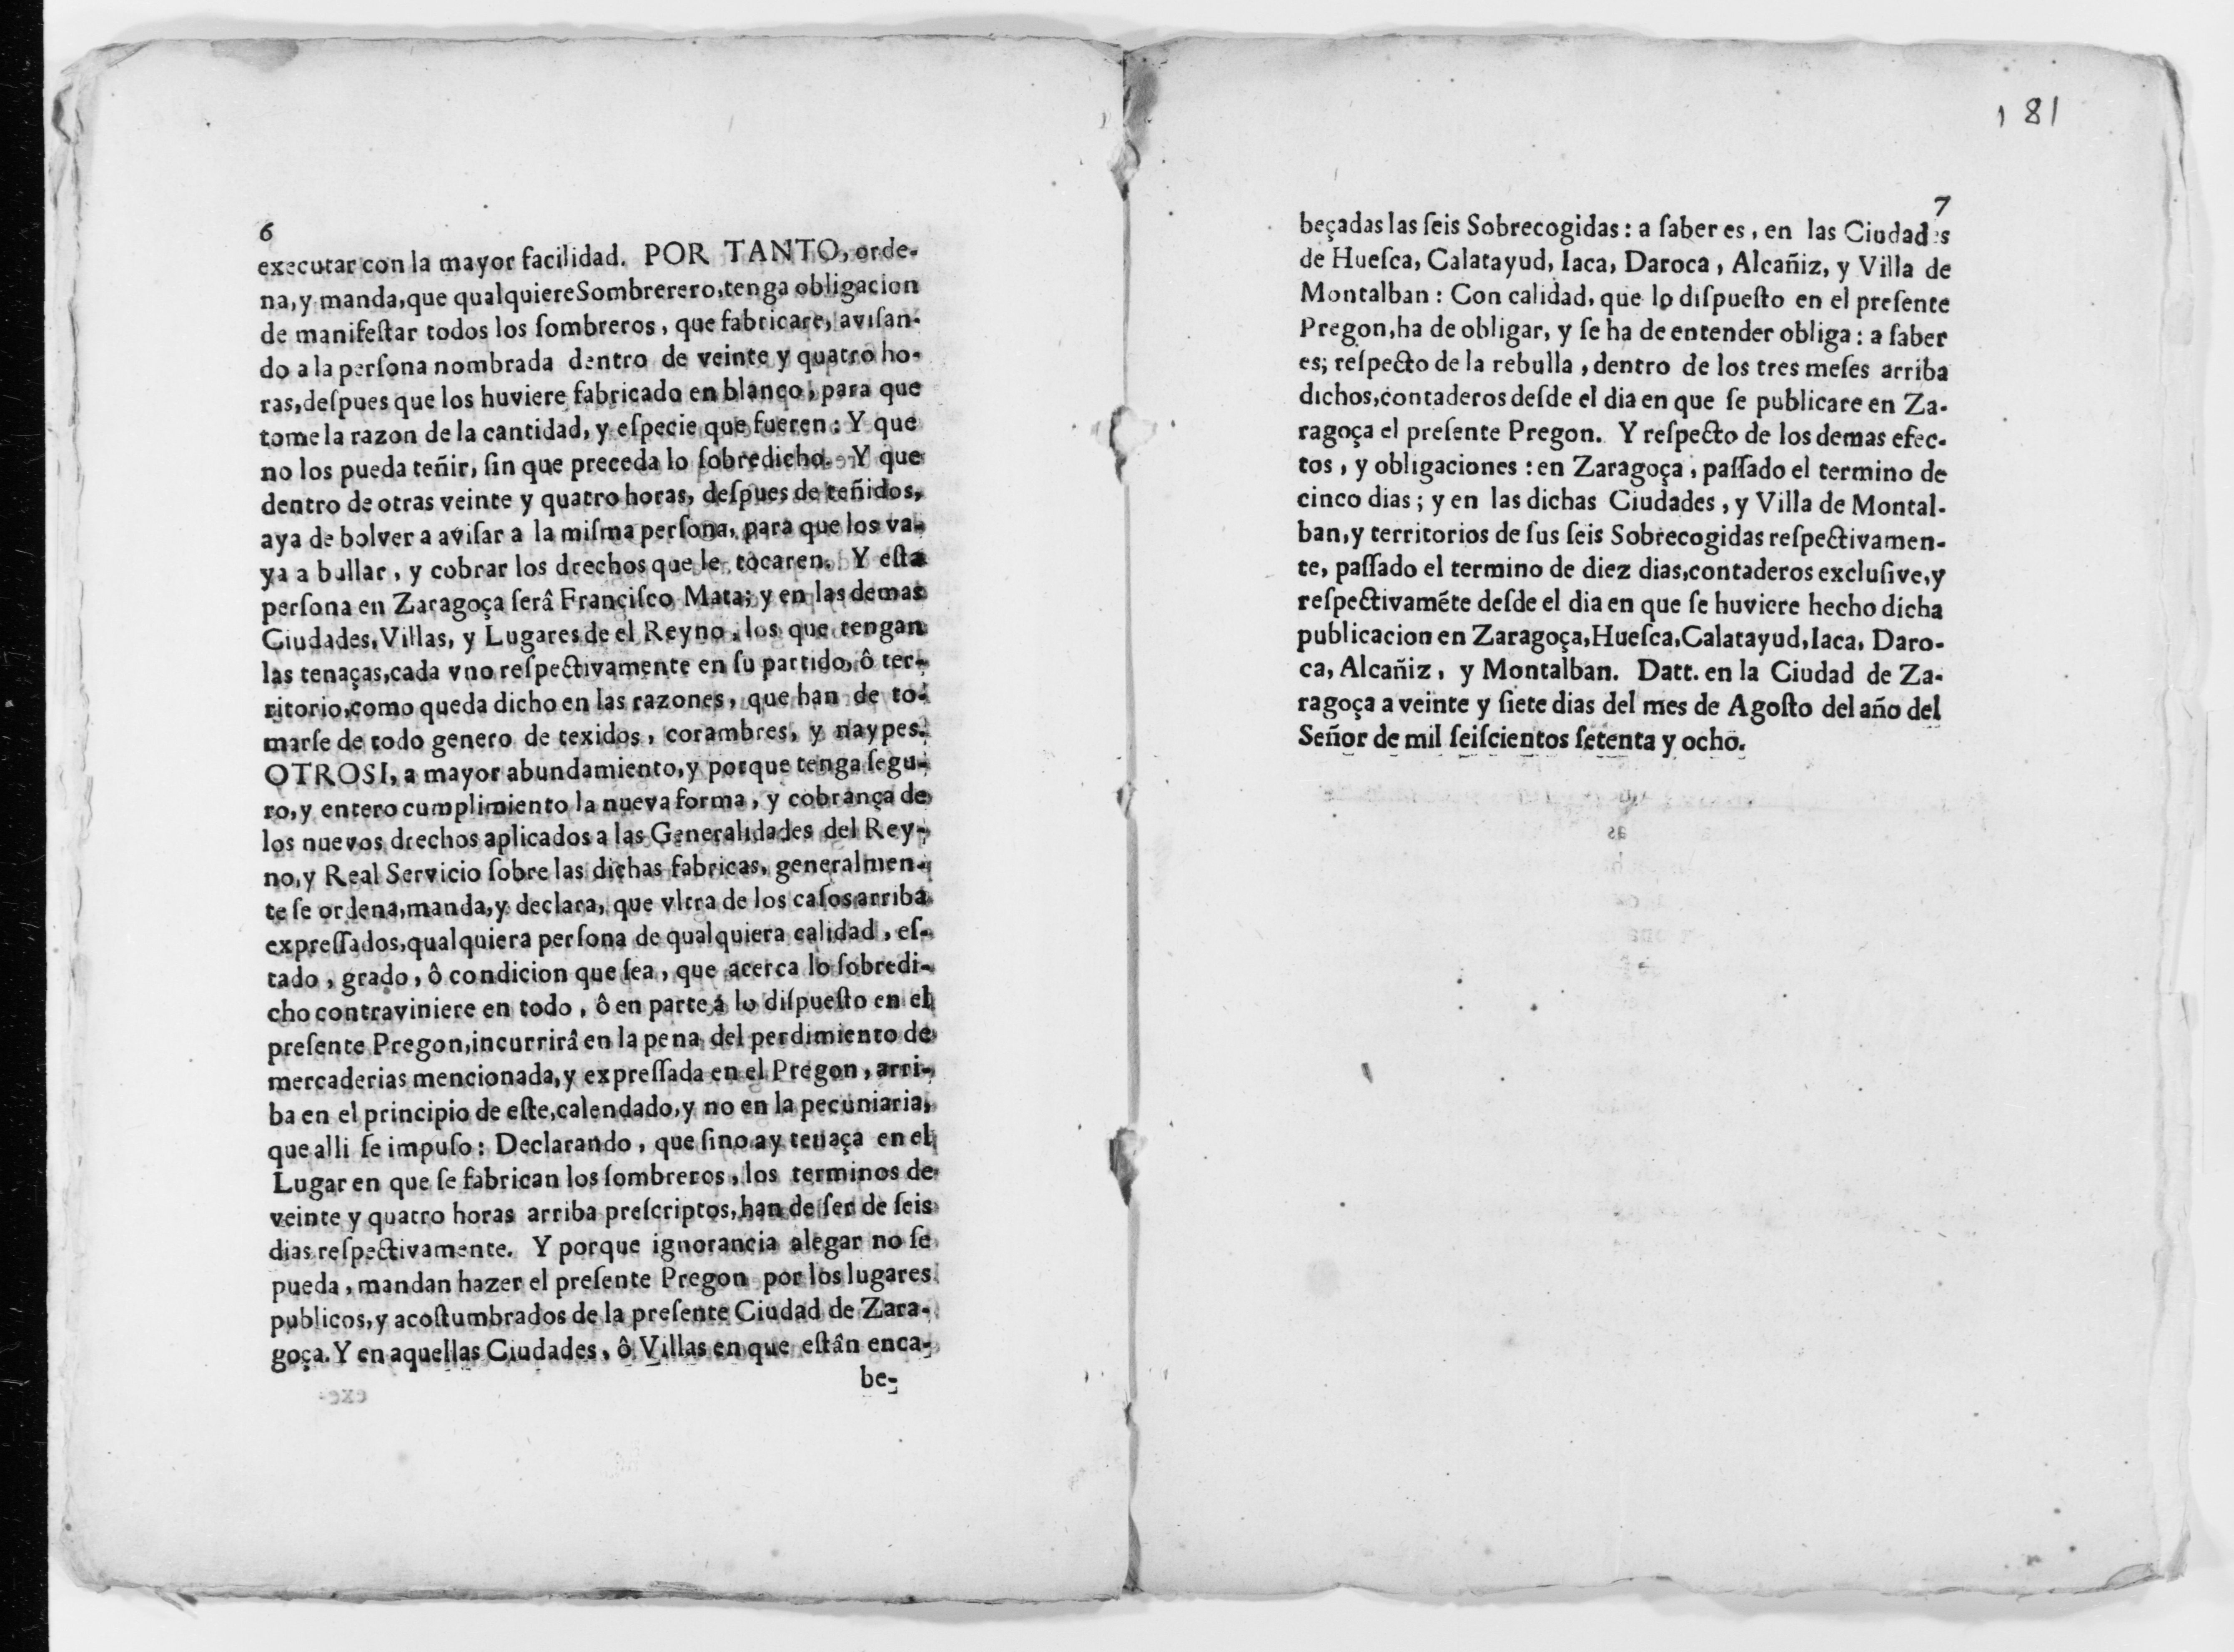 6
executar con la mayor facilidad. POR TANTO, orde-
na, y manda, que qualquiere Sombrerero, tenga obligacion
de manifeſtar todos los ſombreros, que fabricare, aviſan-
do a la perſona nombrada dentro de veinte y quatro ho-
ras, deſpues que los huviere fabricado en blanco, para que
tome la razon de la cantidad, y eſpecie que fueren: Y que
no los pueda teñir, ſin que preceda lo ſobredicho. Y que
dentro de otras veinte y quatro horas, deſpues de teñidos,
aya de bolver a aviſar a la miſma perſona, para que los va-
ya a bullar, y cobrar los drechos que le tocaren. Y eſta
perſona en Zaragoça ſerâ Franciſco Mata; y en las demas
Ciudades, Villas, y Lugares de el Reyno, los que tengan
las tenaças, cada vno reſpectivamente en ſu partido, ô ter-
ritorio, como queda dicho en las razones, que han de to-
marſe de todo genero de texidos, corambres, y naypes.
OTROSI, a mayor abundamiento, y porque tenga ſegu-
ro, y entero cumplimiento la nueva forma, y cobrança de
los nuevos drechos aplicados a las Generalidades del Rey-
no, y Real Servicio ſobre las dichas fabricas, generalmen-
te ſe ordena, manda, y declara, que vltra de los caſos arriba
expreſſados, qualquiera perſona de qualquiera calidad, eſ-
tado, grado, ô condicion que ſea, que acerca lo ſobredi-
cho contraviniere en todo, ô en parte á lo diſpueſto en el
preſente Pregon, incurrirâ en la pena del perdimiento de
mercaderias mencionada, y expreſſada en el Pregon, arri-
ba en el principio de eſte, calendado, y no en la pecuniaria,
que alli ſe impuſo: Declarando, que ſino ay tenaça en el
Lugar en que ſe fabrican los ſombreros, los terminos de
veinte y quatro horas arriba preſcriptos, han de ſer de ſeis
dias reſpectivamente. Y porque ignorancia alegar no ſe
pueda, mandan hazer el preſente Pregon por los lugares
publicos, y acoſtumbrados de la preſente Ciudad de Zara-
goça. Y en aquellas Ciudades, ô Villas en que eſtân enca-
be-
181
7
beçadas las ſeis Sobrecogidas: a ſaber es, en las Ciudades
de Hueſca, Calatayud, Iaca, Daroca, Alcañiz, y Villa de
Montalban: Con calidad, que lo diſpueſto en el preſente
Pregon, ha de obligar, y ſe ha de entender obliga: a ſaber
es; reſpecto de la rebulla, dentro de los tres meſes arriba
dichos, contaderos deſde el dia en que ſe publicare en Za-
ragoça el preſente Pregon. Y reſpecto de los demas efec-
tos, y obligaciones: en Zaragoça, paſſado el termino de
cinco dias; y en las dichas Ciudades, y Villa de Montal-
ban, y territorios de ſus ſeis Sobrecogidas reſpectivamen-
te, paſſado el termino de diez dias, contaderos excluſive, y
reſpectivaméte deſde el dia en que ſe huviere hecho dicha
publicacion en Zaragoça, Hueſca, Calatayud, Iaca, Daro-
ca, Alcañiz, y Montalban. Datt. en la Ciudad de Za-
ragoça a veinte y ſiete dias del mes de Agoſto del año del
Señor de mil ſeiſcientos ſetenta y ocho.